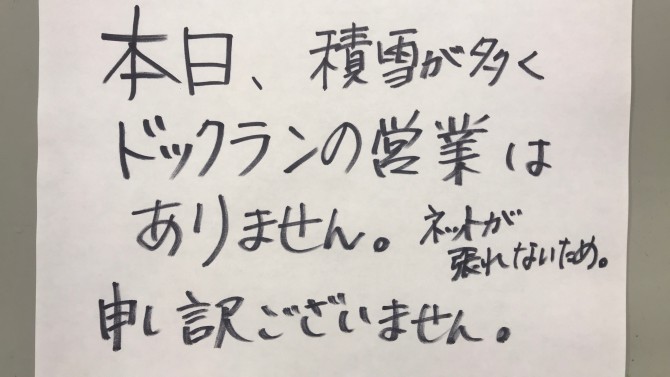 本日、積雪が多く
ドックランの営業は
ありません。
ネットが
張れないため。
申し訳ございません。